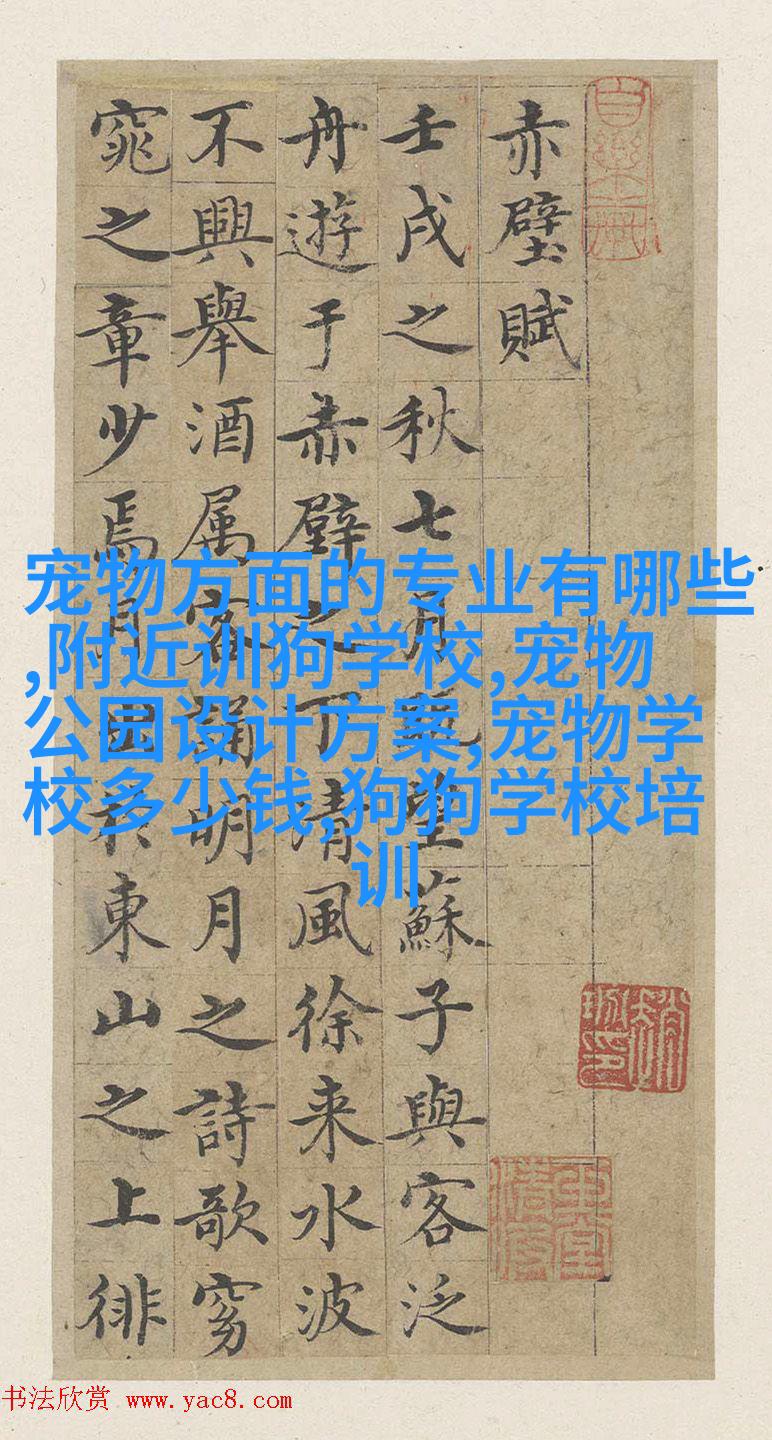 赤壁賦
壬戌之秋七月既望蘇子與客泛
舟遊于赤壁之下清風徐来水波
不興舉酒属客誦明月之詩歌窈
窕之章少焉月出於東山之上徘
宠物方面的专业有哪些
,附近训狗学校,宠物
公园设计方案,宠物学
校多少钱,狗狗学校培
训
书法欣赏 www.yac8.com